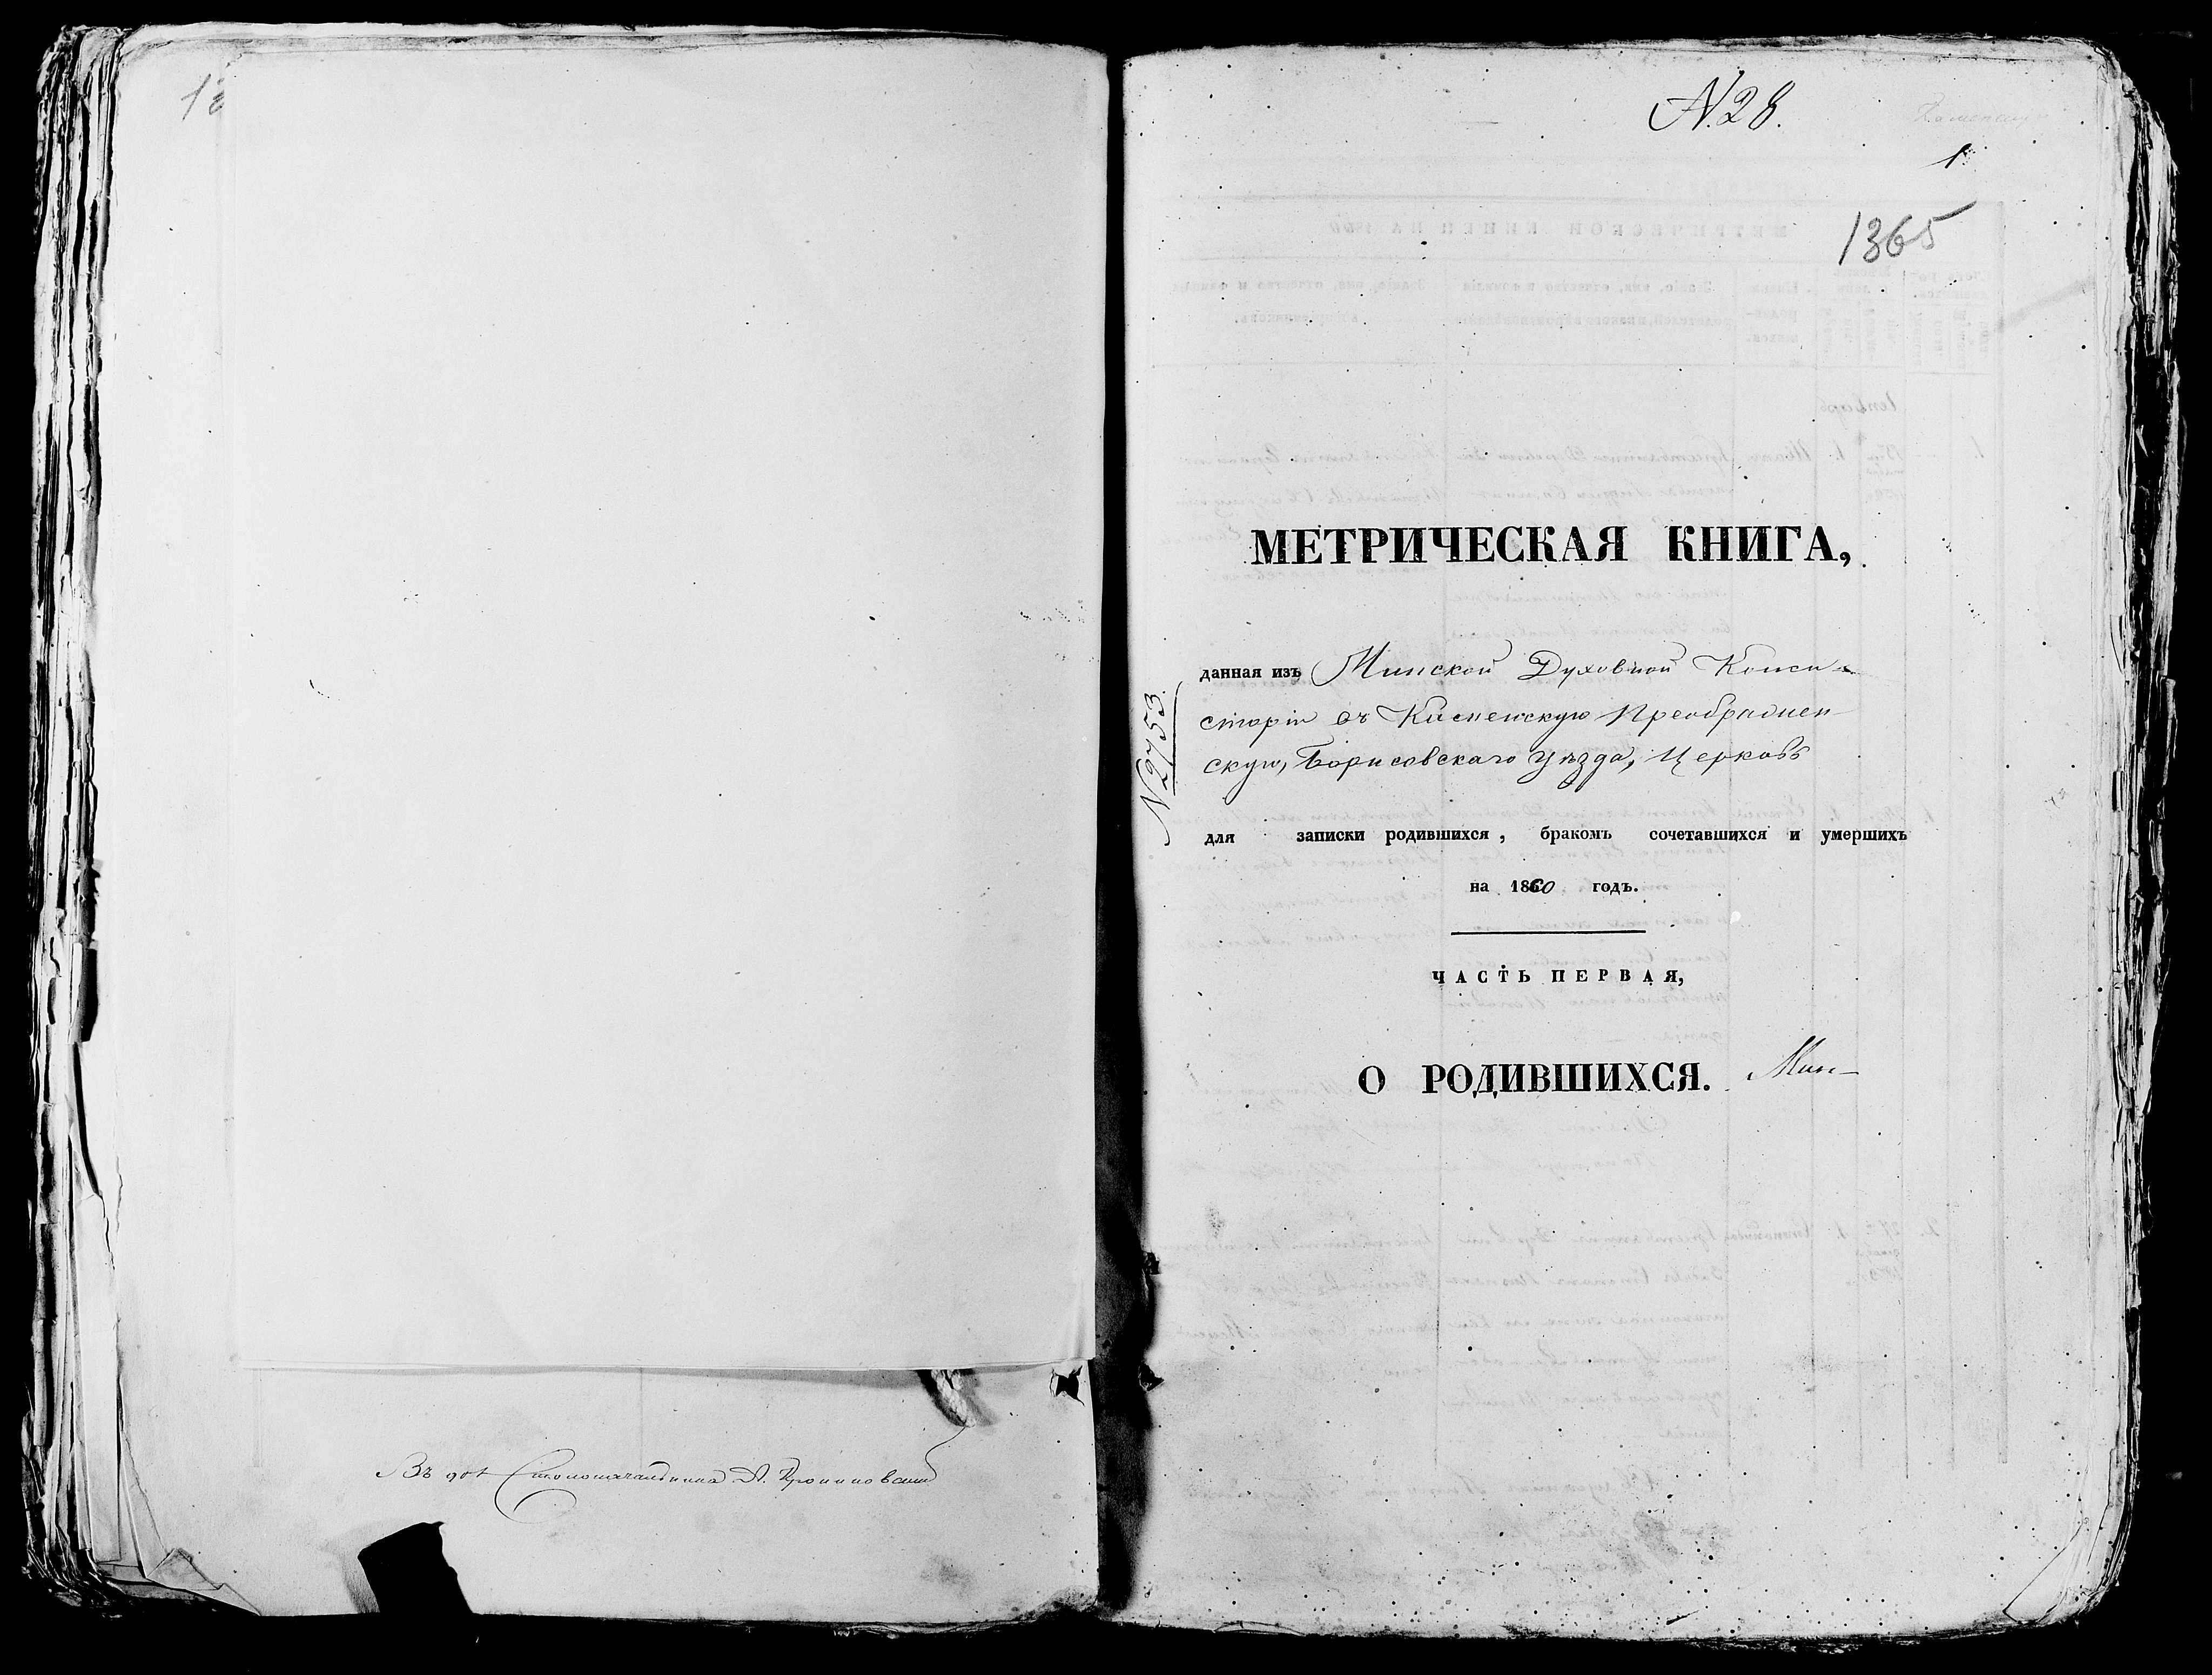 Въ дол. Столоначальника А.
N 28.
1
1365
МЕТРИЧЕСКАЯ КНИГА,
данная изъ Минской Духовной Конси-
сторіи въ Каменскую Преображен-
скую, Борисовскаго уѣзда, Церковь
N 2753.
для записки родившихся, бракомъ сочетавшихся и умершихъ
на 1860 годъ.
ЧАСТЬ ПЕРВАЯ,
О РОДИВШИХСЯ. Мин-